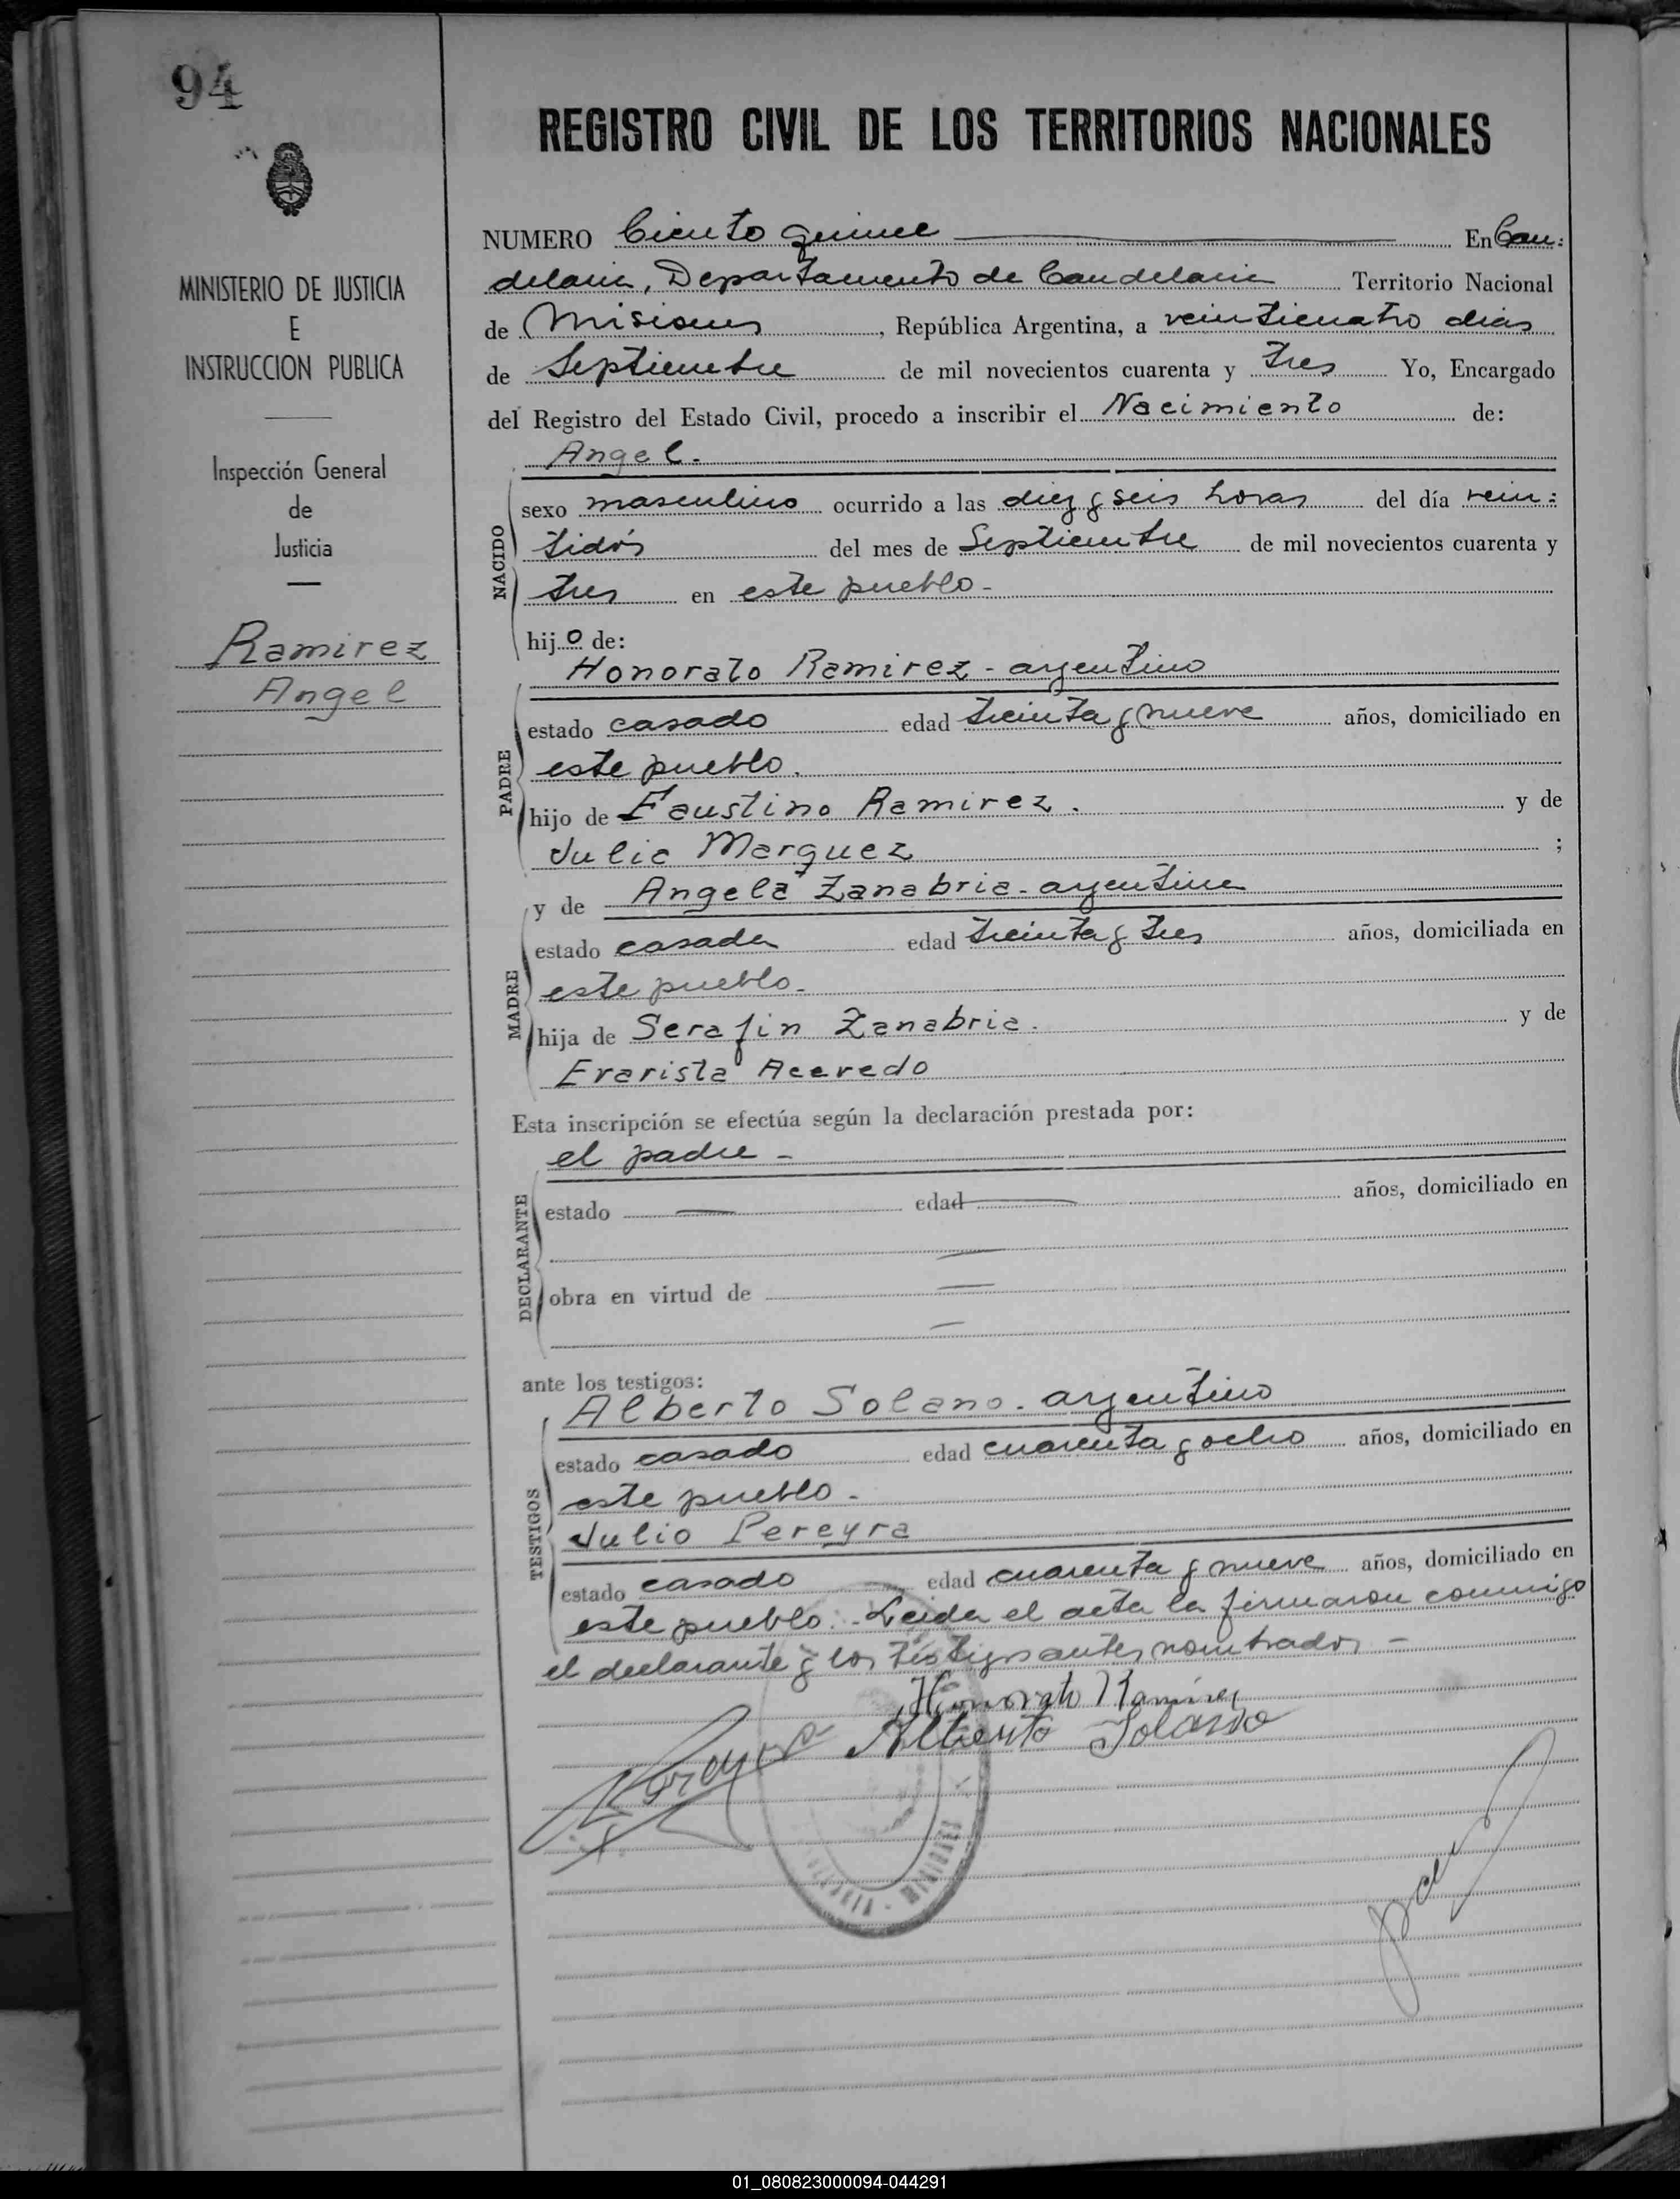 94
MINISTERIO DE JUSTICIA
E
INSTRUCCION PUBLICA
Inspección General
de
Justicia
Ramirez
Angel
REGISTRO CIVIL DE LOS TERRITORIOS NACIONALES
NUMERO Ciento quince En Can:
delaria, Departamento de Candelaria Territorio Nacional
de Misiones, República Argentina, a veinticuatro dias
de Septiembre de mil novecientos cuarenta y tres Yo, Encargado
del Registro del Estado Civil, procedo a inscribir el Nacimiento de:
Angel.
NACIDO
sexo masculino ocurrido a las diez y seis horas del día vein:
tidós del mes de Septiembre de mil novecientos cuarenta y
tres en este pueblo-
hijo de:
Honorato Ramirez - argentino
PADRE
estado casado edad treinta y nueve años, domiciliado en
este pueblo.
hijo de Faustino Ramirez. y de
Julia Marquez ;
y de Angela Zanabria - argentina
MADRE
estado casada edad treinta y tres años, domiciliada en
este pueblo-
hija de Serafin Zanabria. y de
Evarista Acevedo
Esta inscripción se efectúa según la declaración prestada por:
el padre -
DECLARANTE
estado — edad — años, domiciliado en
—
obra en virtud de —
—
ante los testigos:
Alberto Solano - argentino
TESTIGOS
estado casado edad cuarenta y ocho años, domiciliado en
este pueblo -
Julio Pereyra
estado casado edad cuarenta y nueve años, domiciliado en
este pueblo. - Leida el acta la firmaron conmigo
el declarante y los testigos antes nombrados -
Honorato Ramirez
Alberto Solano
MISIONES
01_080823000094-044291